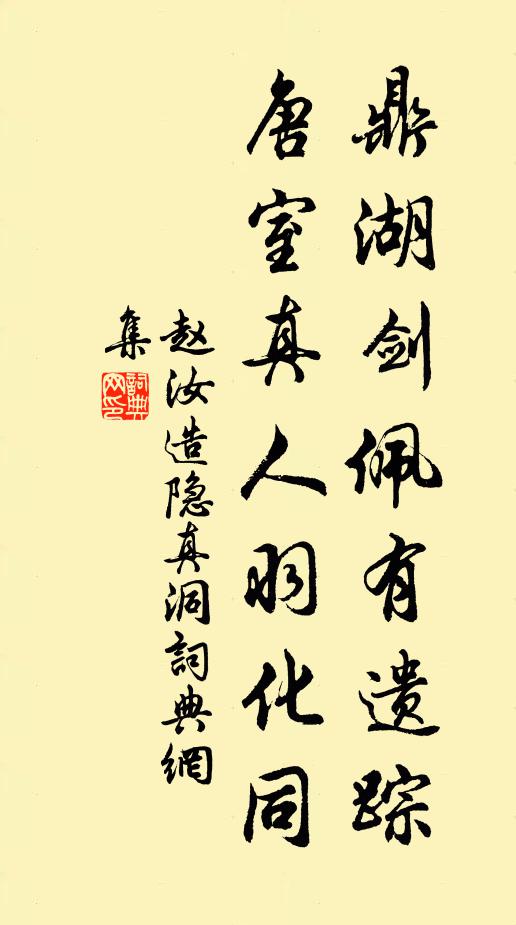 鼎湖剑佩有遗踪
唐室真人羽化同
赵汝造隐真洞詞典網
集
詞典
网印